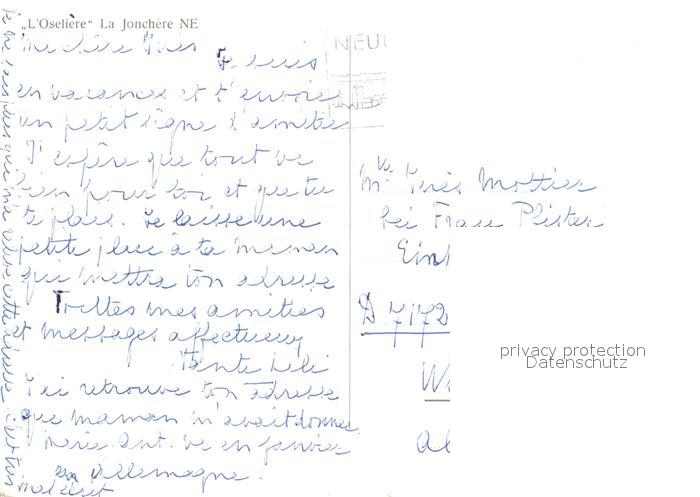 „L'Oselière" La Jonchère NE
Ma chère Inès
Je suis
en vacances et t'envoie
un petit signe d'amitié
J'espère que tout va
bien pour toi et que tu
te plais. Je laisse une
petite place à ta maman
qui mettra ton adresse
Toutes mes amitiés
et messages affectueux
Tante Lili
J'ai retrouvé ton adresse
que maman m'avait donnée
Ant. va en janvier
en Allemagne.
NEU
Mlle Inès Mottier
bei Frau Plister
D 7172
privacy protection
Datenschutz